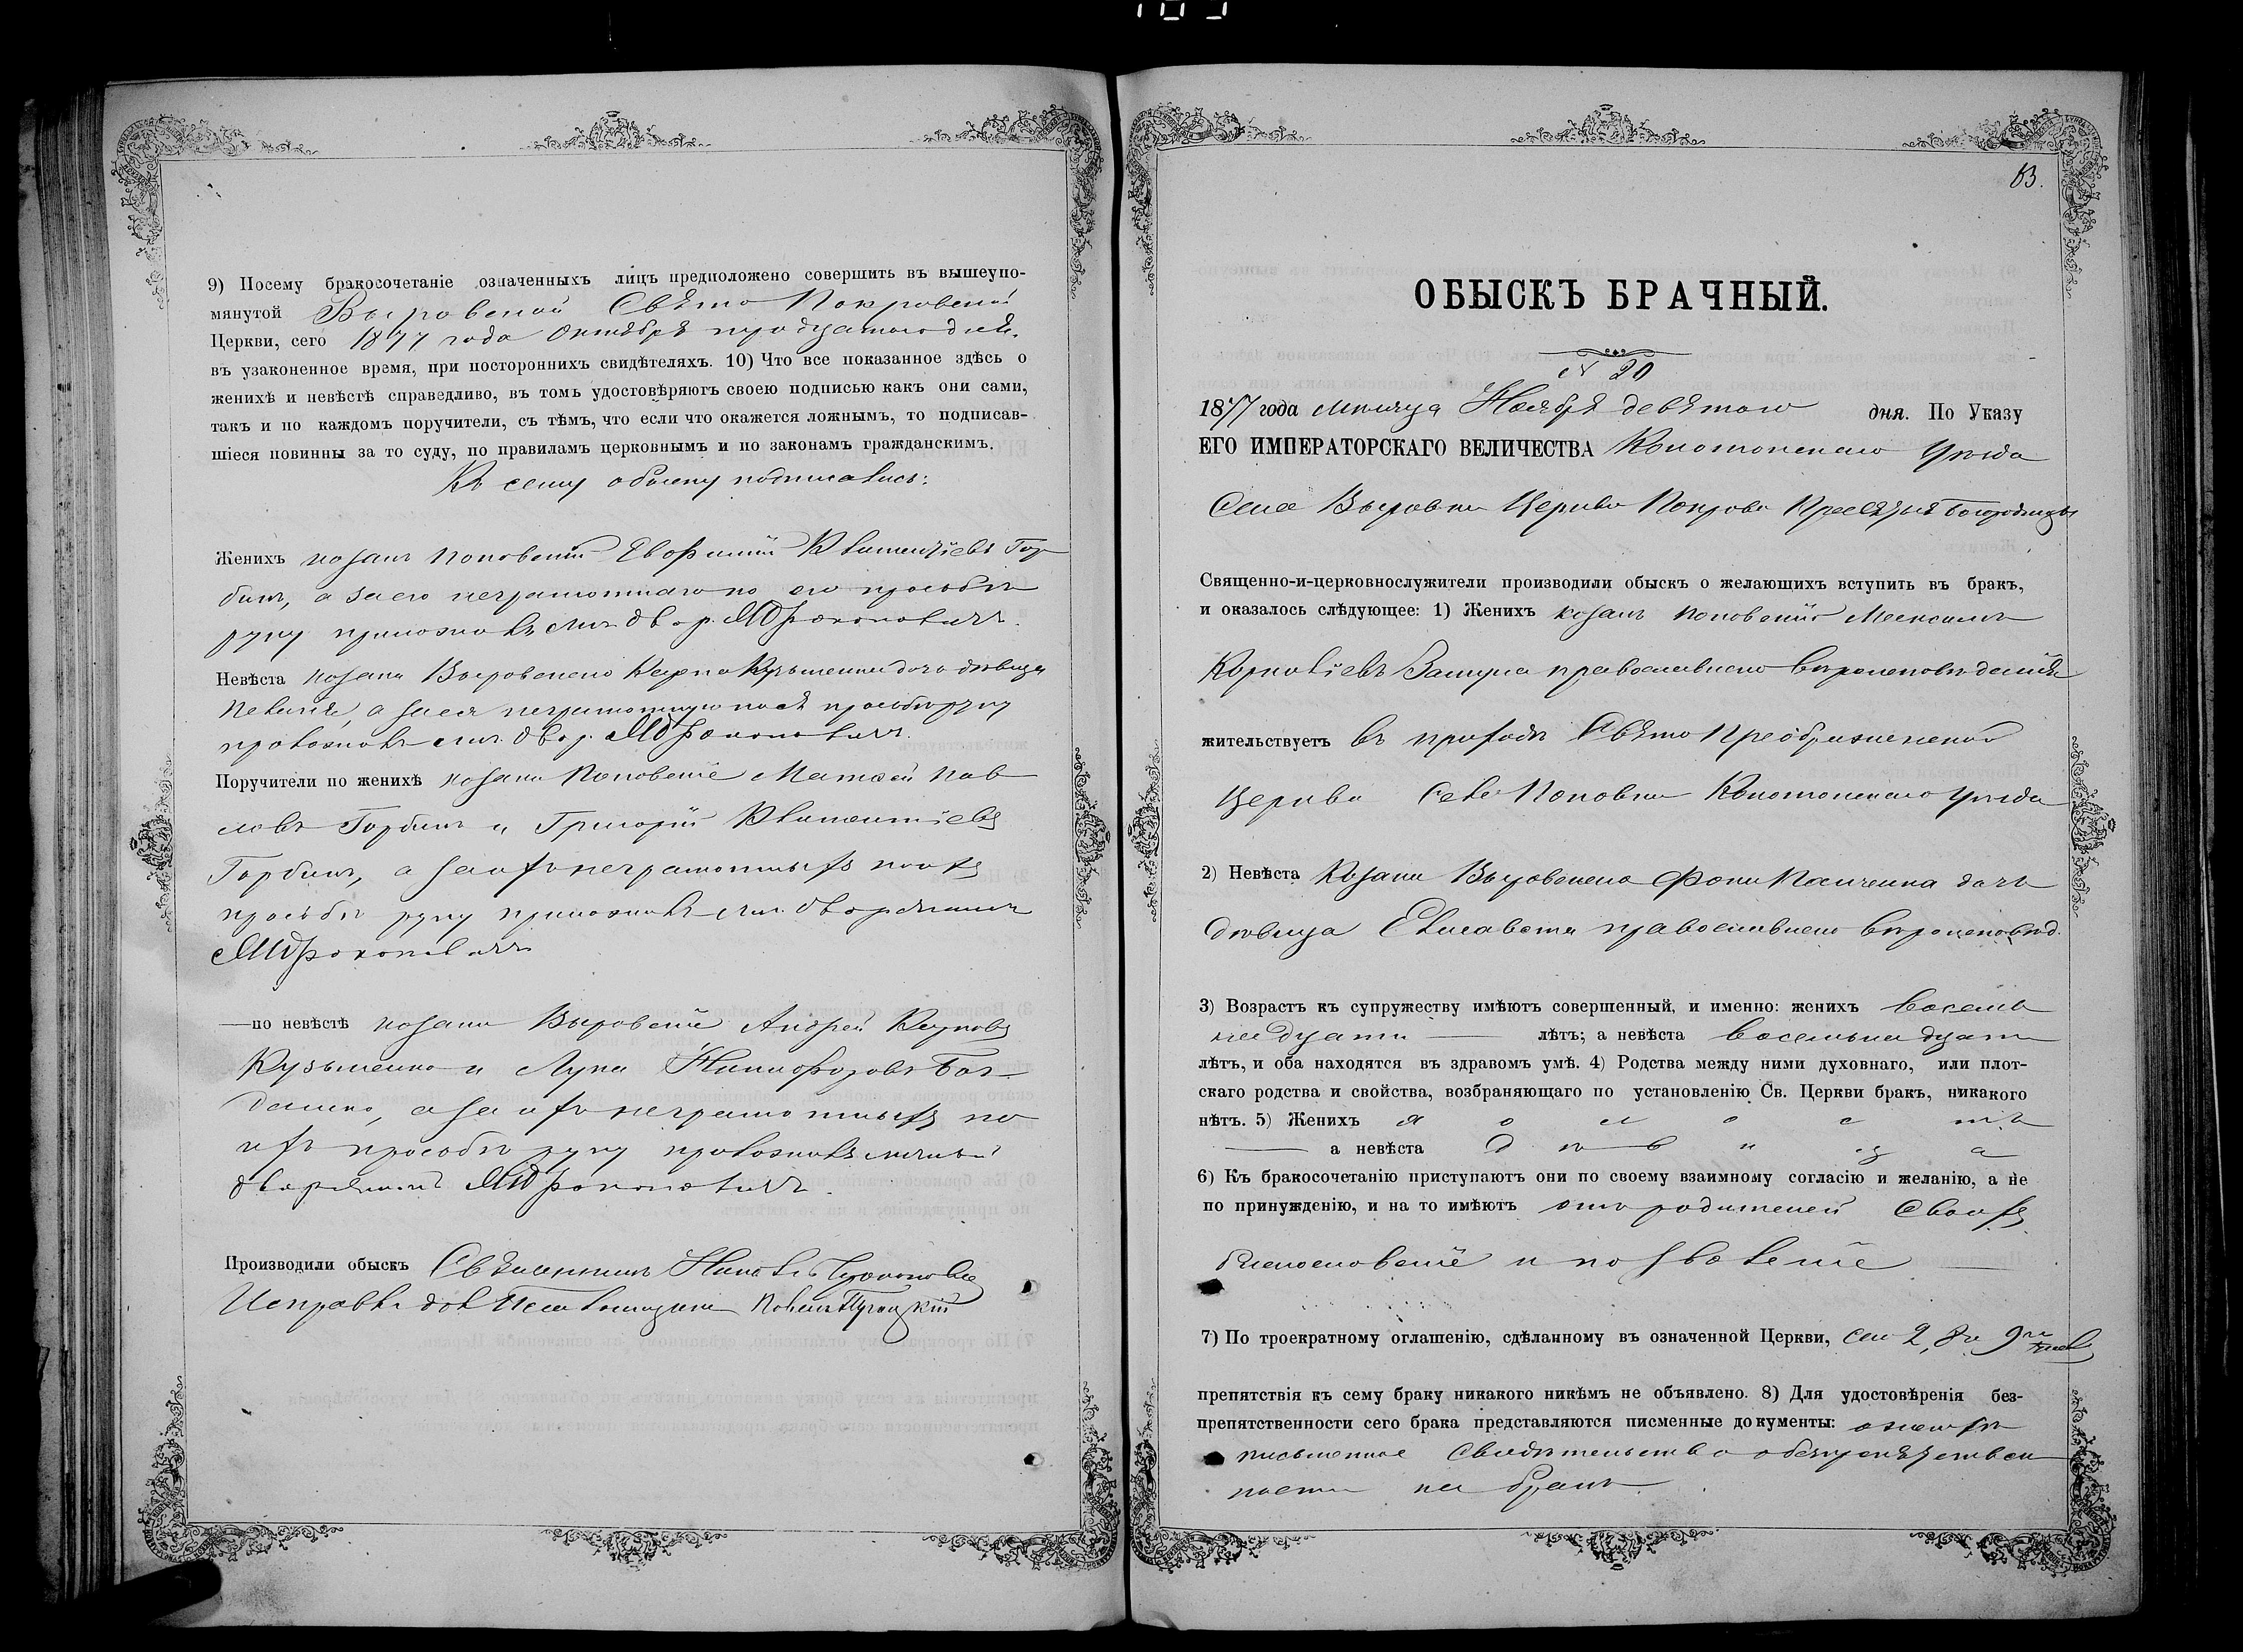 9) Посему бракосочетаніе означенныхъ лицъ предположено совершить въ вышеупо-
мянутой Выровской Свято Покровской
Церкви, сего 1877 года Октября тридцатого дня.
въ узаконенное время, при постороннихъ свидѣтеляхъ. 10) Что все показанное здѣсь о
женихѣ и невѣстѣ справедливо, въ томъ удостовѣряютъ своею подписью какъ они сами,
такъ и по каждомъ поручители, съ тѣмъ, что если что окажется ложнымъ, то подписав-
шіеся повинны за то суду, по правиламъ церковнымъ и по законамъ гражданскимъ.
Къ сему обыску подписались:
Женихъ козакъ Поповскій Евфимій Климентіевъ Гор
бикъ, а за его неграмотнаго по его просьбѣ
руку приложилъ двор.
Невѣста козака Выровского Карпа Кузьменка дочь дѣвица
а за ея неграмотную по ея просьбѣ руку
приложилъ двор.
Поручители по женихѣ козаки Поповскіе Матвей Пав
ловъ Горбикъ и Григорій Климентіевъ
Горбикъ, а за ихъ неграмотныхъ по ихъ
просьбѣ руку приложилъ дворянинъ
—по невѣстѣ козаки Выровскіе Андрей Карповъ
Кузьменко и Лука Никифоровъ Бог
данко, а за ихъ неграмотныхъ по
ихъ просьбѣ руку приложилъ личный
дворянинъ
Производили обыскъ Священникъ
Исправл. дол. Псаломщика
63.
ОБЫСКЪ БРАЧНЫЙ.
№ 20
1877 года мѣсяца Ноября девятого дня. По Указу
ЕГО ИМПЕРАТОРСКАГО ВЕЛИЧЕСТВА Конотопского Уѣзда
Села Выровки Церкви Покрова Пресвятыя Богородицы
Священно-и-церковнослужители производили обыскъ о желающихъ вступить въ бракъ,
и оказалось слѣдующее: 1) Женихъ козакъ Поповскій Максимъ
Корниліевъ православного вѣроисповѣданія
жительствуетъ въ приходѣ Свято Преображенской
Церкви Села Поповки Конотопского Уѣзда
2) Невѣста Козака Выровского Фоки Панченка дочь
дѣвица Елисавета православного вѣроисповѣд.
3) Возрастъ къ супружеству имѣютъ совершенный, и именно: женихъ восемь
надцати — лѣтъ; а невѣста восемьнадцати
лѣтъ, и оба находятся въ здравомъ умѣ. 4) Родства между ними духовнаго, или плот-
скаго родства и свойства, возбраняющаго по установленію Св. Церкви бракъ, никакого
нѣтъ. 5) Женихъ х о л о с тъ
— а невѣста д ѣ в и ц а
6) Къ бракосочетанію приступаютъ они по своему взаимному согласію и желанію, а не
по принужденію, и на то имѣютъ отъ родителей своихъ
благословеніе и позволеніе —
7) По троекратному оглашенію, сдѣланному въ означенной Церкви,
препятствія къ сему браку никакого никѣмъ не объявлено. 8) Для удостовѣренія без-
препятственности сего брака представляются писменные документы: о женихѣ
письменное свидѣтельство о безпрепятствен
ности на бракъ